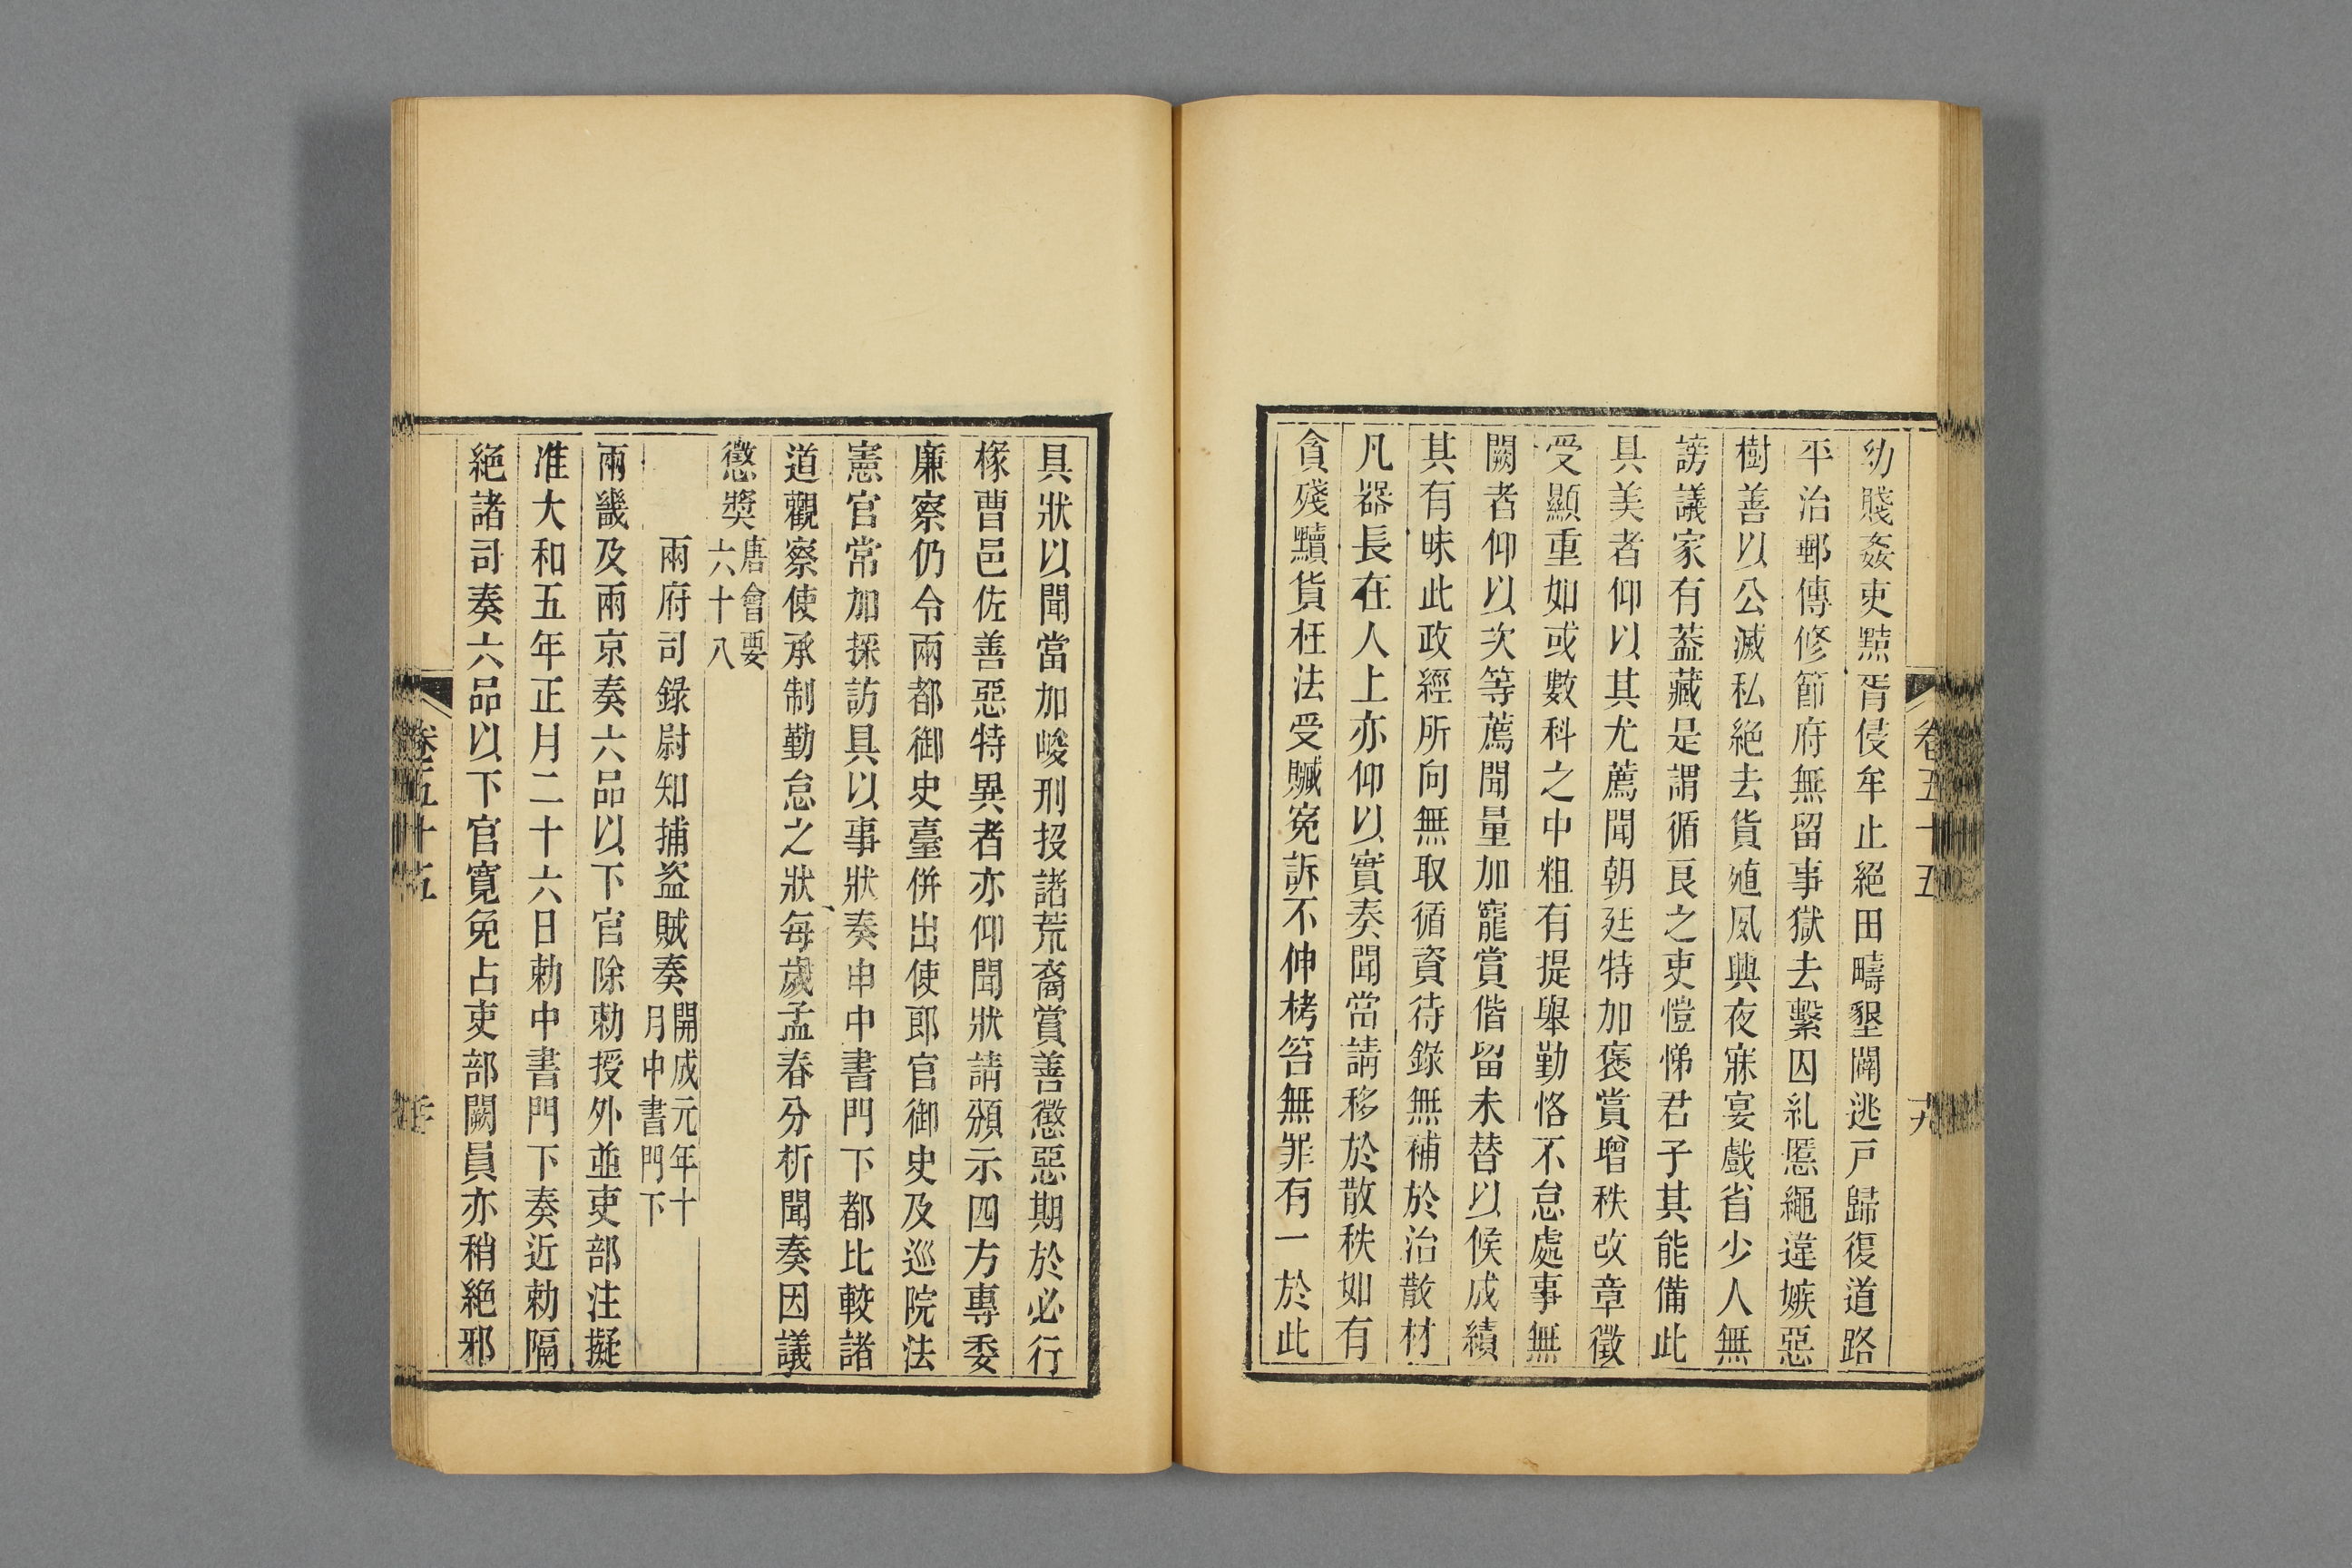 幼賤姦吏黠胥侵牟止絕田疇墾闢逃戸歸復道路
平治郵傳修節府無留事獄去繫囚糺慝繩違嫉惡
樹善以公滅私絕去貨殖夙興夜寐宴戲省少人無
謗議家有葢藏是謂循良之吏愷悌君子其能備此
具美者仰以其尤薦聞朝廷特加褒賞增秩改章徵
受顯重如或數科之中粗有提舉勤恪不怠處事無
闕者仰以次等薦聞量加寵賞偕留未替以候成績
其有昧此政經所向無取循資待錄無補於治散材
凡器長在人上亦仰以實奏聞當請移於散秩如有
貪殘黷貨枉法受贓寃訴不伸栲笞無罪有一於此
卷五十五
具狀以聞當加峻刑投諸荒裔賞善懲惡期於必行
椽曹邑佐善惡特異者亦仰聞狀請頒示四方專委
廉察仍令兩都御史臺併出使郎官御史及巡院法
憲官常加採訪具以事狀奏申中書門下都比較諸
道觀察使承制勤怠之狀每歲孟春分析聞奏因議
懲獎唐會要
六十八
兩府司錄尉知捕盜賊奏開成元年十
月中書門下
兩畿及兩京奏六品以下官除勅授外並吏部注擬
准大和五年正月二十六日勅中書門下奏近勅隔
絕諸司奏六品以下官寛免占吏部闕員亦稍絕邪
卷五十五